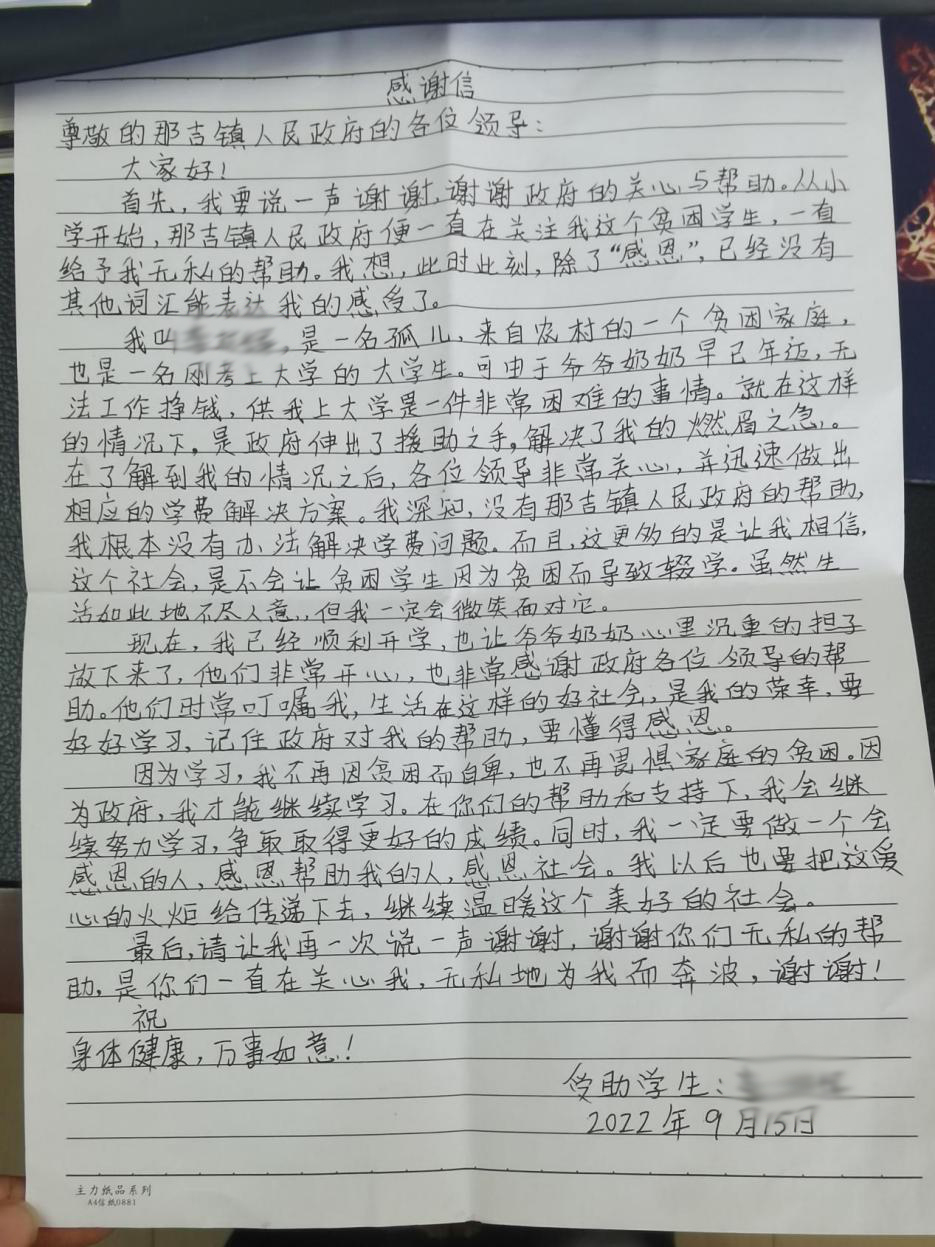 感谢信
尊敬的那吉镇人民政府的各位领导：
大家好！
首先，我要说一声谢谢，谢谢政府的关心与帮助。从小
学开始，那吉镇人民政府便一直在关注我这个贫困学生，一直
给予我无私的帮助。我想，此时此刻，除了“感恩”，已经没有
其他词汇能表达我的感受了。
我叫，是一名孤儿，来自农村的一个贫困家庭，
也是一名刚考上大学的大学生。可由于爷爷奶奶早已年迈，无
法工作挣钱，供我上大学是一件非常困难的事情。就在这样
的情况下，是政府伸出了援助之手，解决了我的燃眉之急。
在了解到我的情况之后，各位领导非常关心，并迅速做出
相应的学费解决方案。我深知，没有那吉镇人民政府的帮助，
我根本没有办法解决学费问题。而且，这更多的是让我相信，
这个社会，是不会让贫困学生因为贫困而导致辍学。虽然生
活如此地不尽人意，但我一定会微笑面对它。
现在，我已经顺利开学，也让爷爷奶奶心里沉重的担子
放下来了，他们非常开心，也非常感谢政府各位领导的帮
助。他们时常叮嘱我，生活在这样的好社会，是我的荣幸，要
好好学习，记住政府对我的帮助，要懂得感恩。
因为学习，我不再因贫困而自卑，也不再畏惧家庭的贫困。因
为政府，我才能继续学习。在你们的帮助和支持下，我会继
续努力学习，争取取得更好的成绩。同时，我一定要做一个会
感恩的人，感恩帮助我的人，感恩社会。我以后也要把这爱
心的火炬给传递下去，继续温暖这个美好的社会。
最后，请让我再一次说一声谢谢，谢谢你们无私的帮
助，是你们一直在关心我，无私地为我而奔波，谢谢！
祝
身体健康，万事如意！
受助学生：
2022年9月15日
主力纸品系列
A4信纸0881